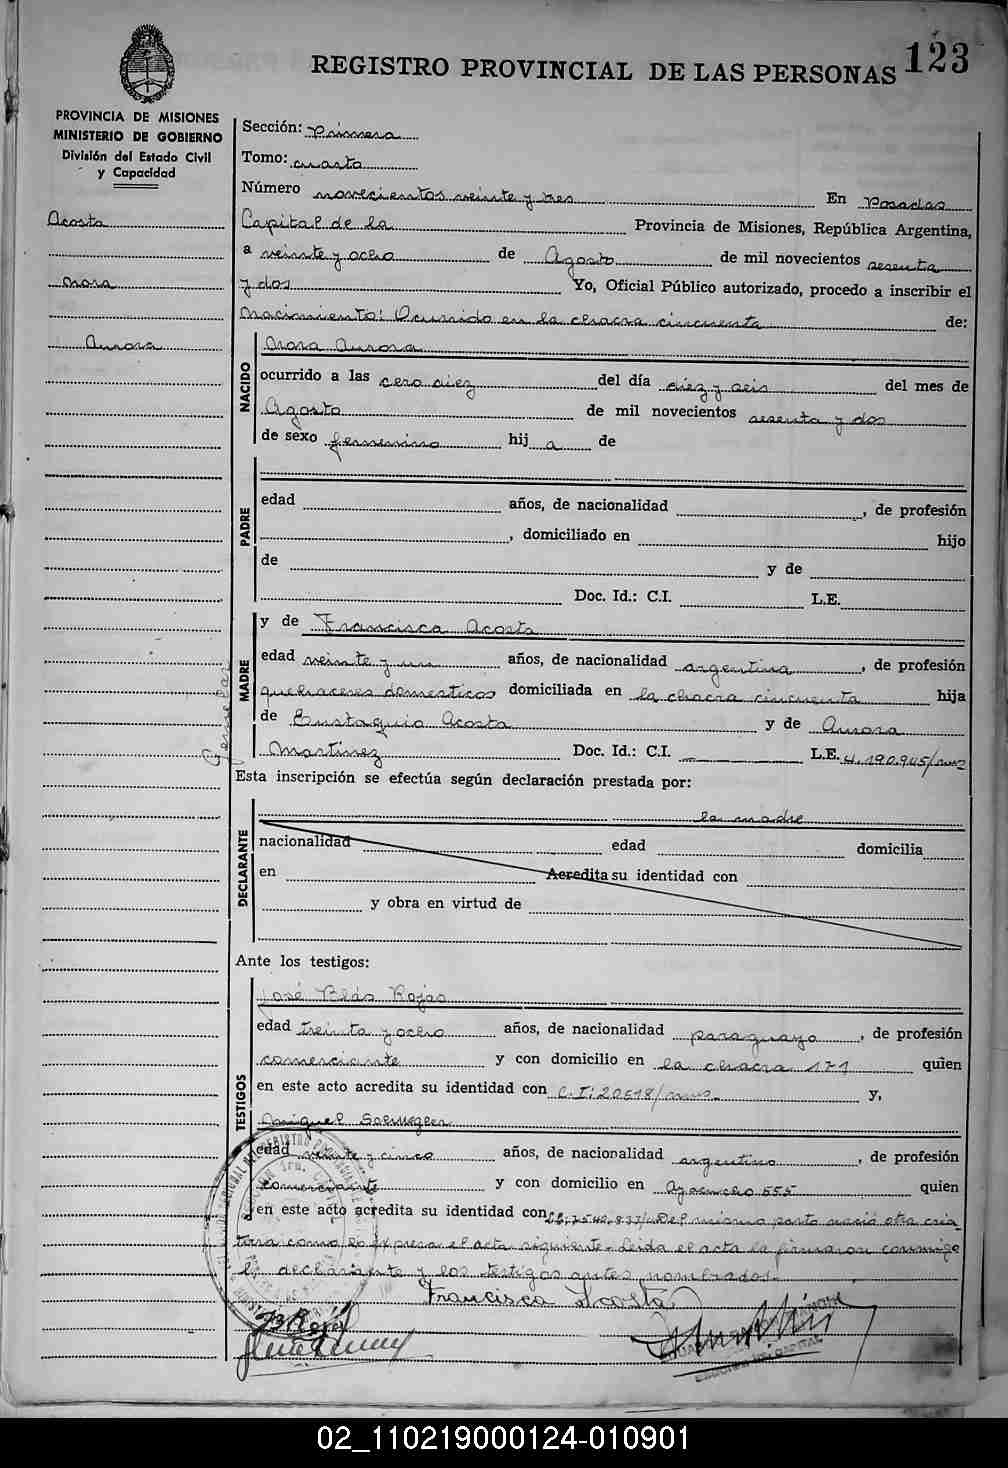 123
REGISTRO PROVINCIAL DE LAS PERSONAS
PROVINCIA DE MISIONES
MINISTERIO DE GOBIERNO
División del Estado Civil
y Capacidad
Acosta
Nora
Aurora
Sección: Primera
Tomo: cuarto
Número novecientos veinte y tres En Posadas
Capital de la Provincia de Misiones, República Argentina,
a veinte y ocho de Agosto de mil novecientos sesenta
y dos Yo, Oficial Público autorizado, procedo a inscribir el
Nacimiento: Ocurrido en la chacra cincuenta de:
NACIDO
Nora Aurora
ocurrido a las cero diez del día diez y seis del mes de
Agosto de mil novecientos sesenta y dos
de sexo femenino hij a de
PADRE
edad años, de nacionalidad , de profesión
, domiciliado en hijo
de y de
Doc. Id.: C.I. L.E.
MADRE
y de Francisca Acosta
edad veinte y un años, de nacionalidad argentina , de profesión
quehaceres domesticos domiciliada en la chacra cincuenta hija
de Eustaquio Acosta y de Aurora
Martinez Doc. Id.: C.I. L.E. 4.190.945/
Esta inscripción se efectúa según declaración prestada por:
DECLARANTE
la madre
nacionalidad edad domicilia
en Acredita su identidad con
y obra en virtud de
Ante los testigos:
TESTIGOS
José Blás Rojas
edad treinta y ocho años, de nacionalidad paraguayo , de profesión
comerciante y con domicilio en la chacra 171 quien
en este acto acredita su identidad con C.I: 20518/ y,
Miguel
edad veinte y cinco años, de nacionalidad argentino , de profesión
comerciante y con domicilio en Ayacucho 555 quien
en este acto acredita su identidad con 7.540.837/ Del mismo parto nació otra cria
tura como lo expresa el acta siguiente. Leida el acta la firmaron conmigo
la declarante y los testigos antes nombrados.
Francisca Acosta
B Rojas
02_110219000124-010901